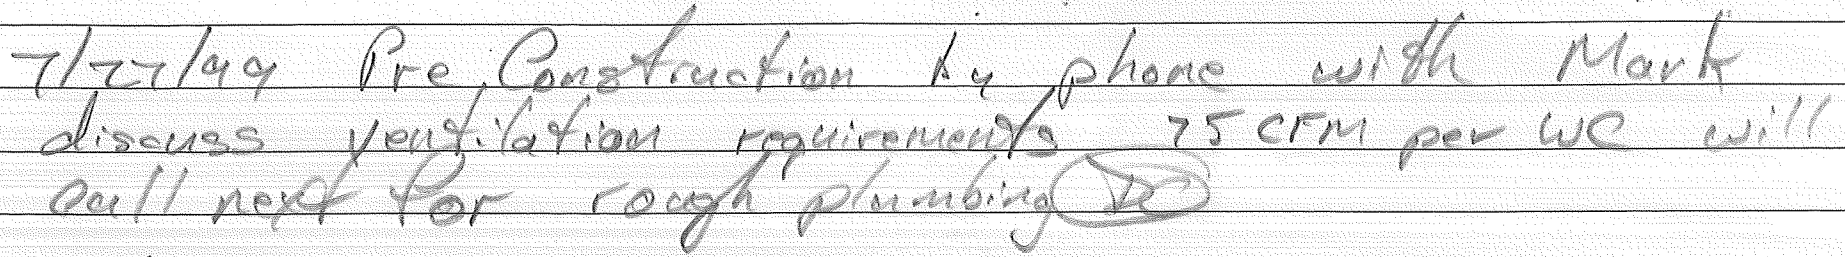 7/27/99 Pre Construction by phone with Mark
discuss ventilation requirements 75 CFM per WC will
call next for rough plumbing DC